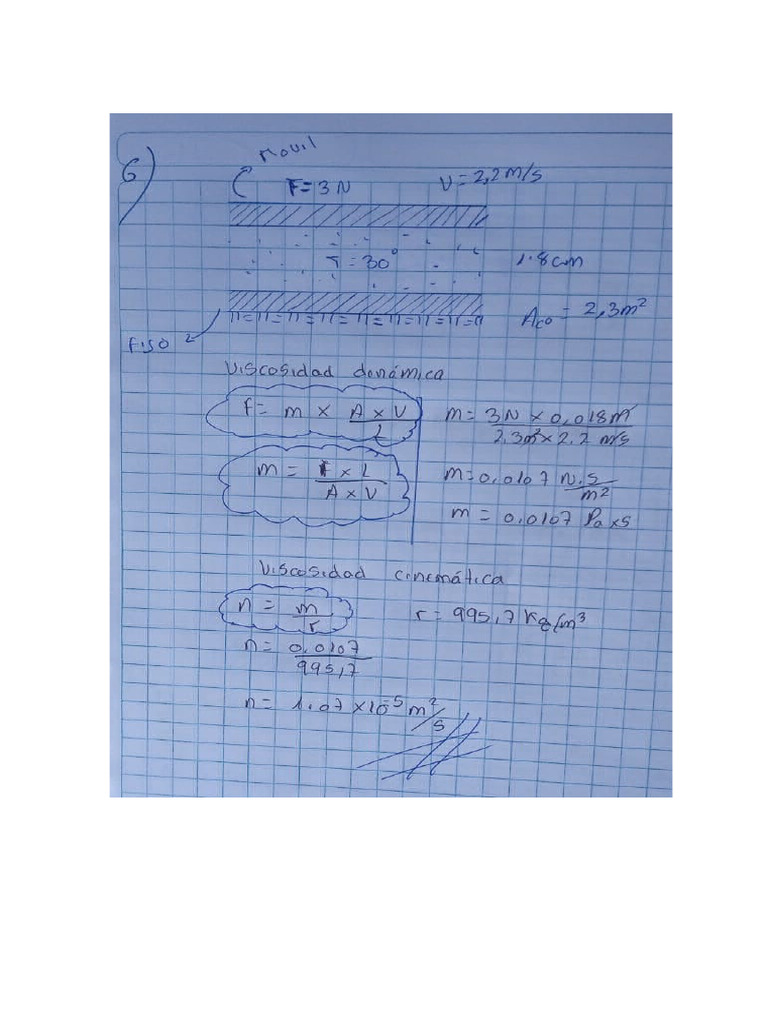 6)
Movil
F = 3 N
V = 2,2 m/s
T = 30°
1.8 cm
Aco = 2,3 m²
Fiso
Viscosidad donámica
F = m × A × V / L
m = F × L / A × V
m = 3N × 0,018 m / 2,3m² × 2,2 m/s
m = 0,0107 N.s / m²
m = 0,0107 Pa × s
Viscosidad cinemática
n = m / r
r = 995,7 Kg/m³
n = 0,0107 / 995,7
n = 1.07 × 10⁻⁵ m²/s